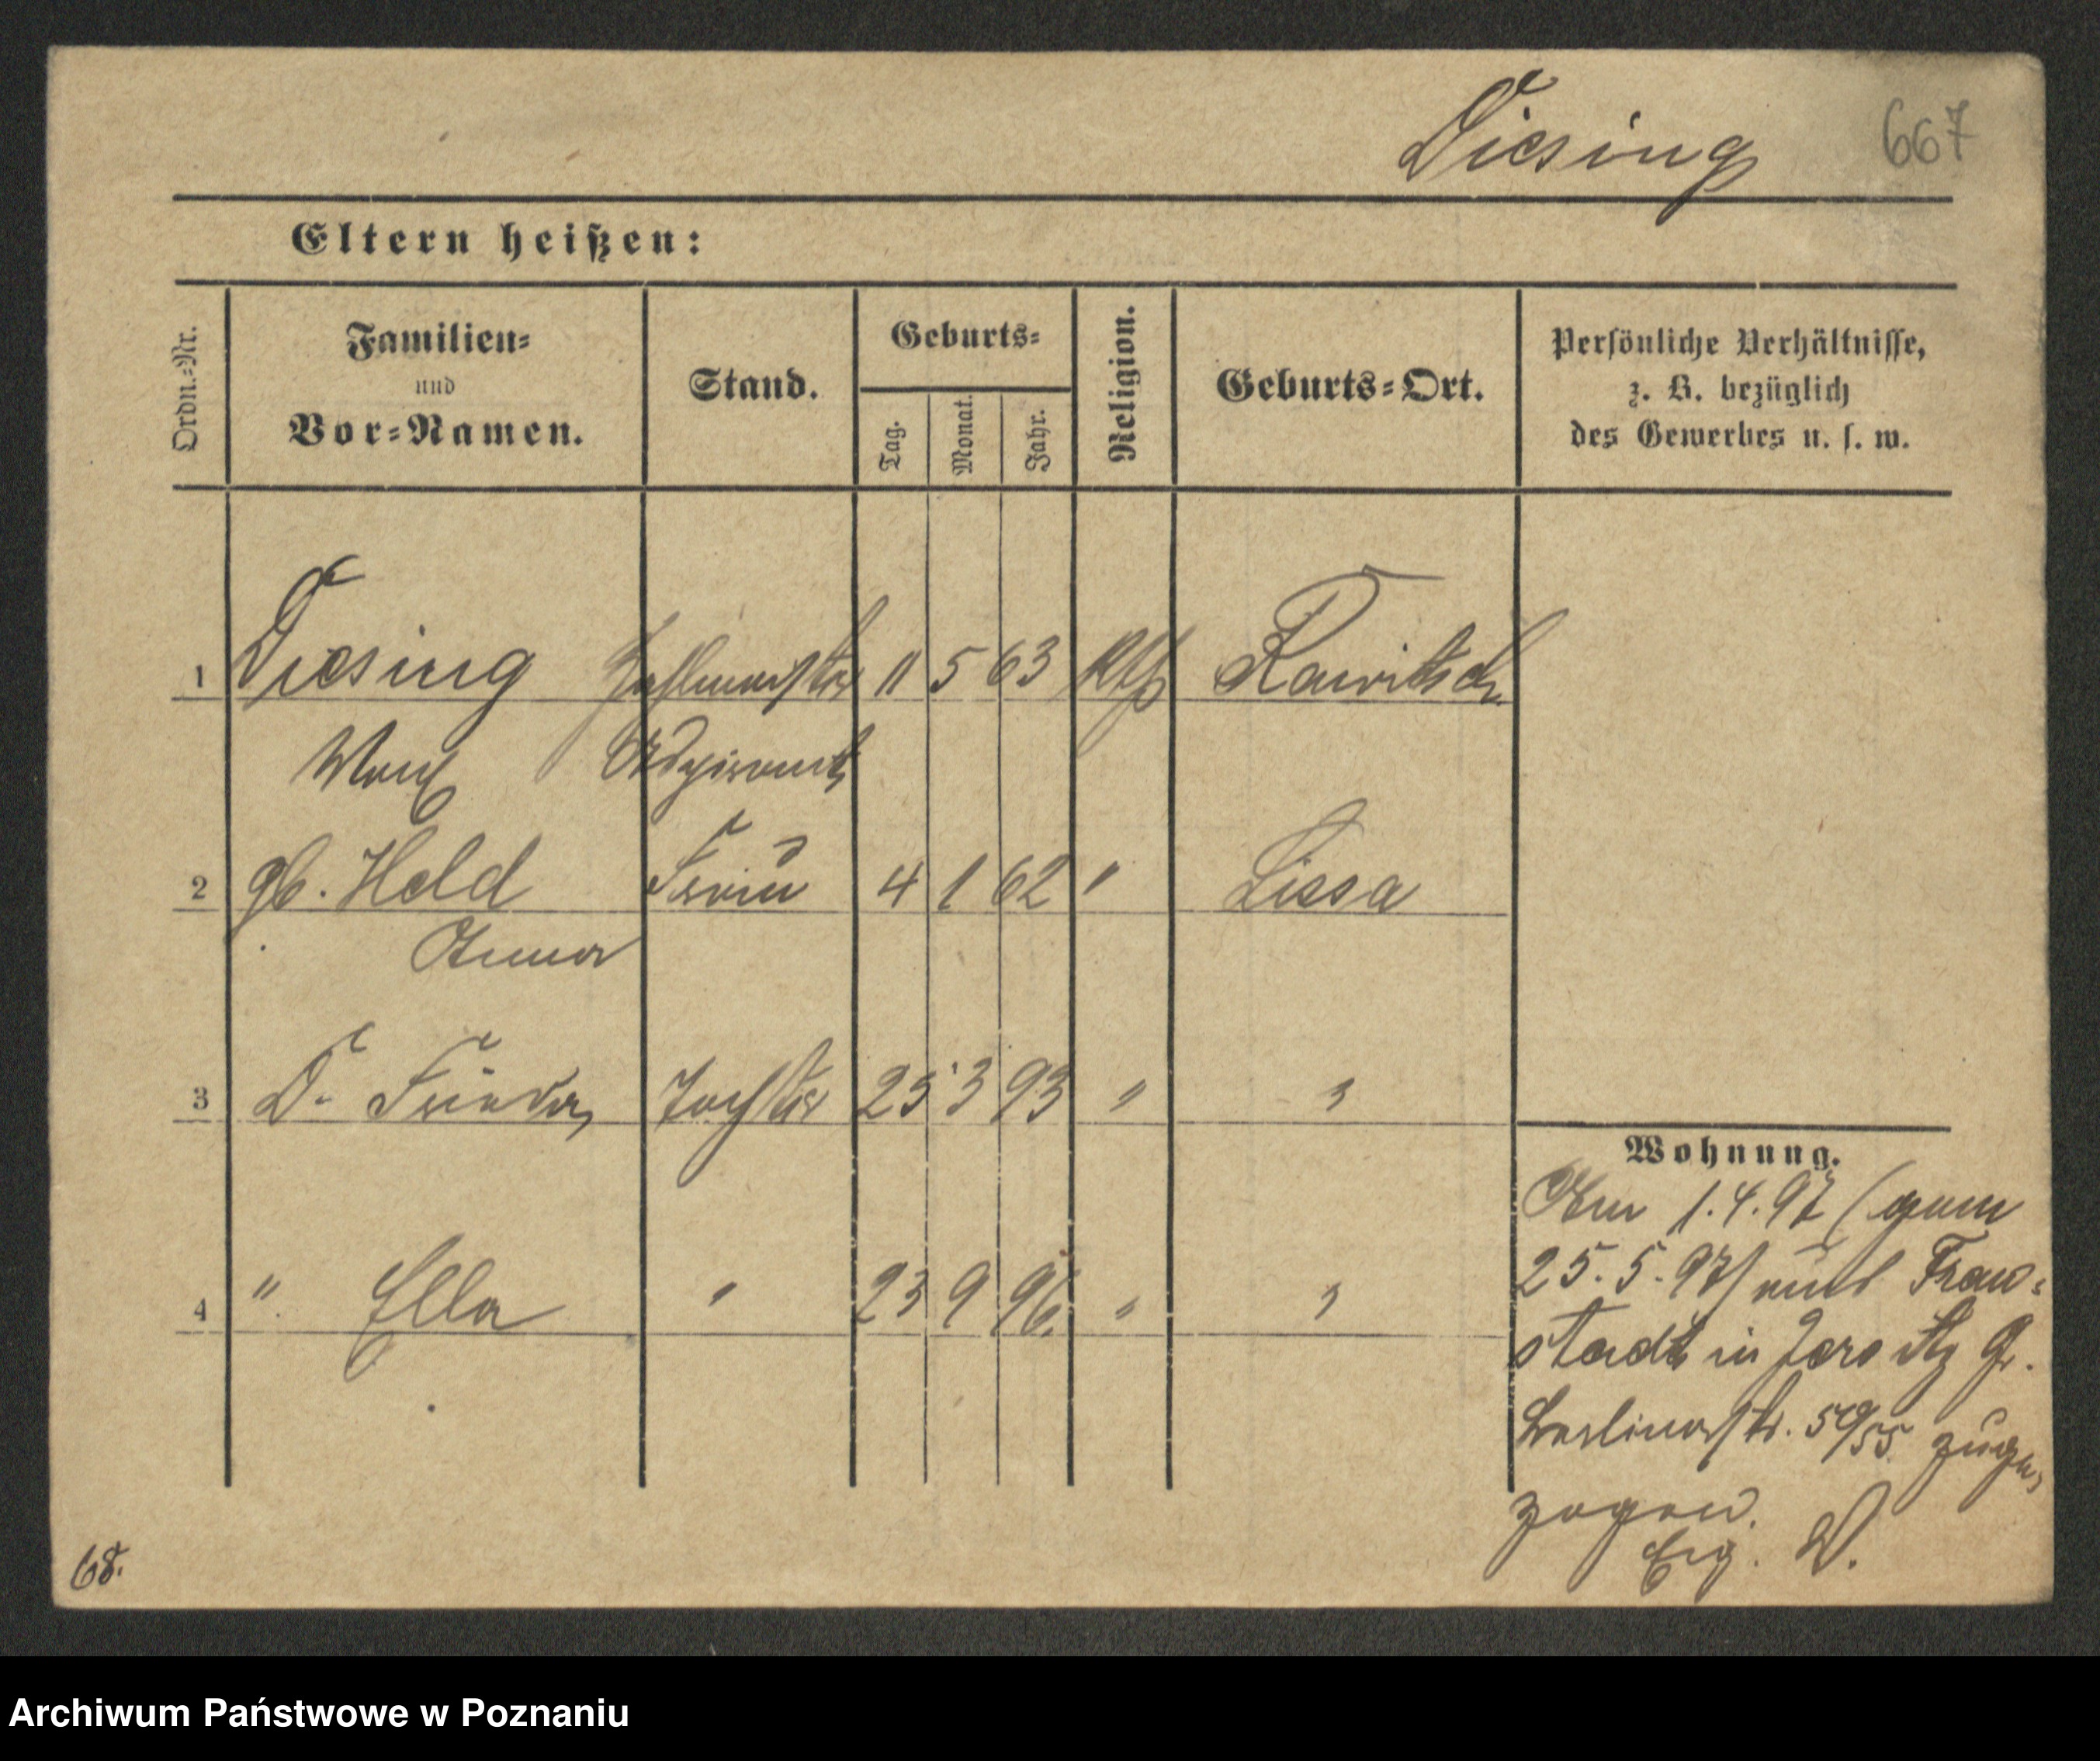 Diesing 667
Eltern heißen:
Ordn.-Nr.
Familien-
und
Vor-Namen.
Stand.
Geburts-
Tag.
Monat.
Jahr.
Religion.
Geburts-Ort.
Persönliche Verhältnisse,
z. B. bezüglich
des Gewerbes u. s. w.
1 Diesing Zahlmeister 11 5 63 Rawitsch
Max Aspirant
2 gb. Held Frau 4 1 62 " Lissa
Anna
3 D. Frieda Tochter 25 3 93 " "
4 " Ella " 23 9 96. " "
Wohnung.
Am 1.4.97 (gem
25.5.97) aus Frau=
stadt in Jersitz Gr.
Berlinerstr. zuge,
zogen.
D.
68.
Archiwum Państwowe w Poznaniu